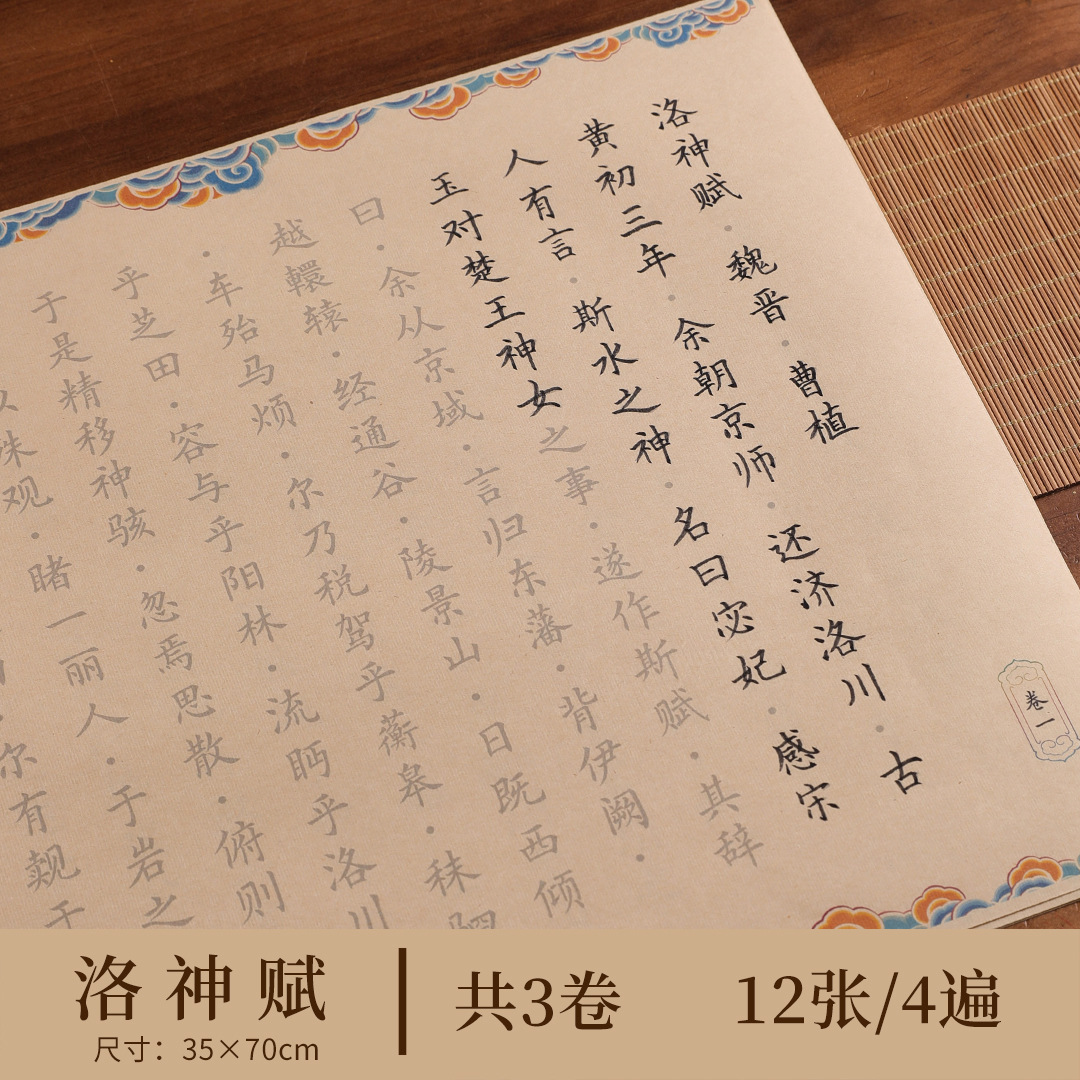 洛神赋·魏晋·曹植
黄初三年·余朝京师·还济洛川·古
人有言·斯水之神·名曰宓妃·感宋
玉对楚王神女之事·遂作斯赋·其辞
曰·余从京域·言归东藩·背伊阙·
越轘辕·经通谷·陵景山·日既西倾
·车殆马烦·尔乃税驾乎蘅皋·秣驷
乎芝田·容与乎阳林·流眄乎洛川
于是精移神骇·忽焉思散·俯则
殊观·睹一丽人·于岩之
尔有觌于
卷一
洛神赋
尺寸：35×70cm
共3卷
12张/4遍